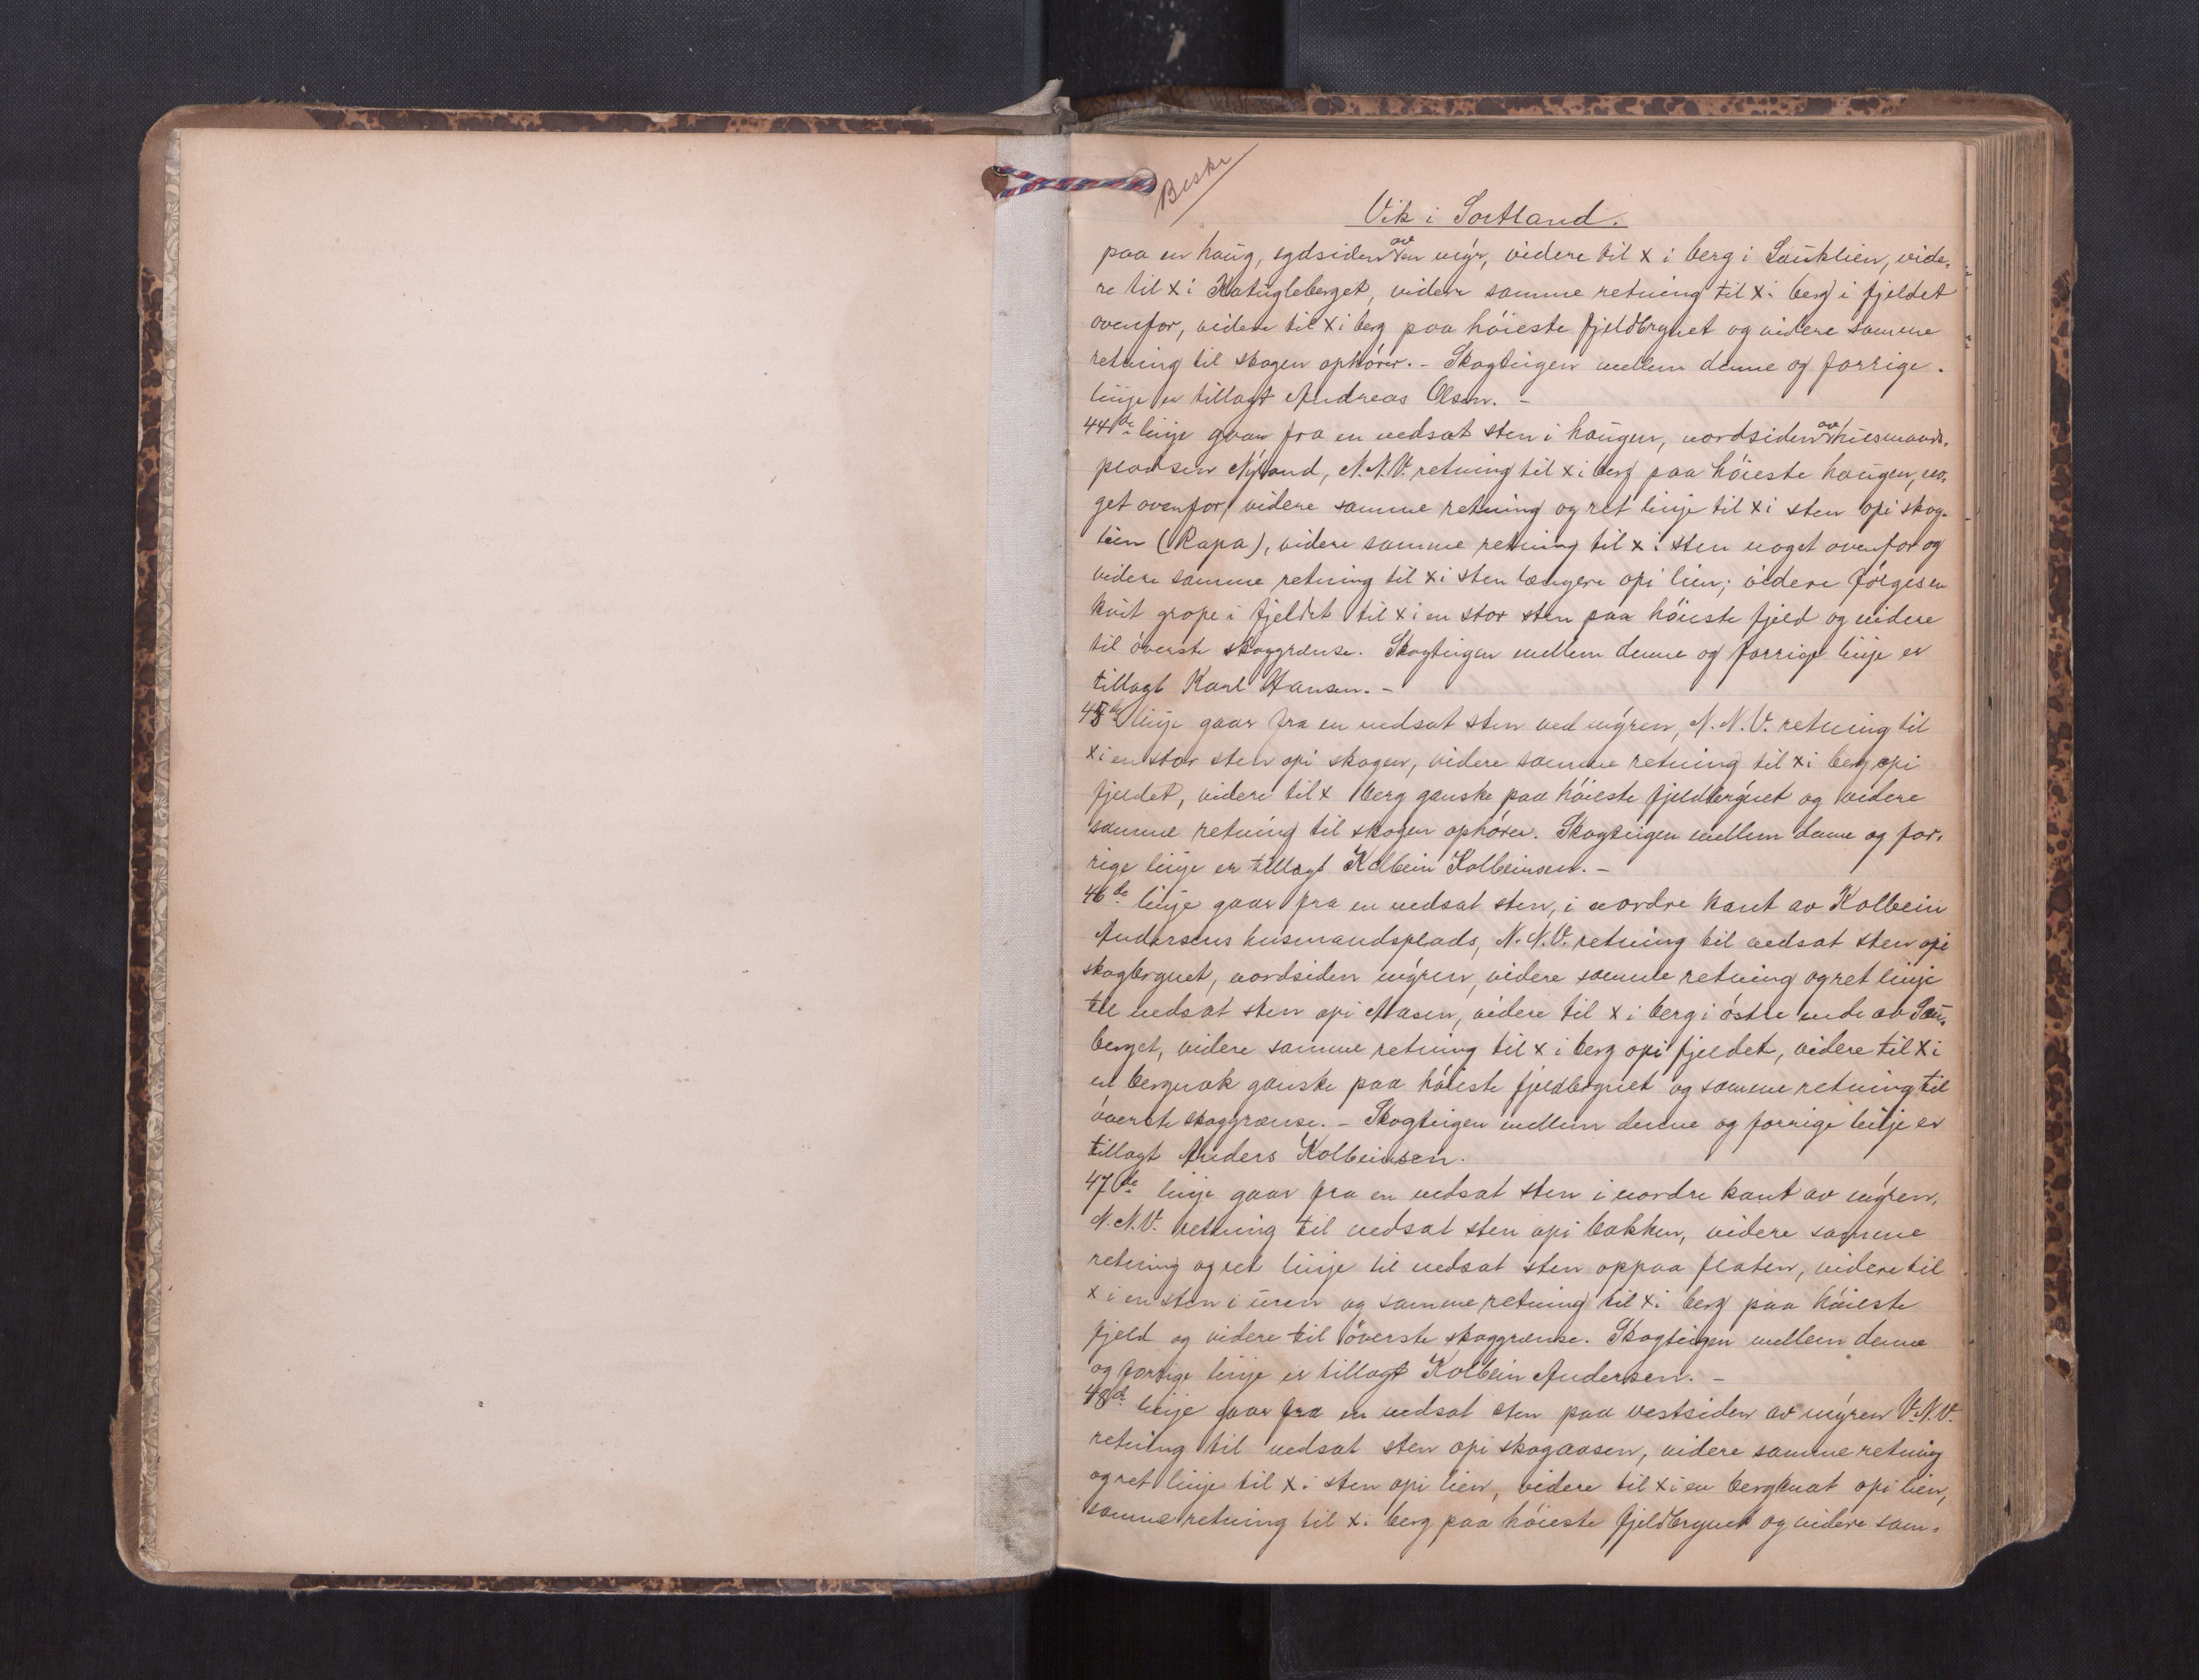 Beskr
Vik i Sortland.
paa en haug, sydsiden av en myr, videre til x i berg i Sauklien, vide-
re til x i Katugleberget, videre samme retning til x i berg i fjeldet
ovenfor, videre til x i berg paa høieste fjeldbrynet og videre samme
retning til skogen ophører. - Skogteigen mellem denne og forrige
linje er tillagt Andreas Olsen. -
44de linje gaar fra en nedsat sten i haugen, nordsiden av husmands-
pladsen Nyland, N.N.V. retning til x i berg paa høieste haugen, no-
get ovenfor, videre samme retning og ret linje til x i sten opi skog-
lien (Rapa), videre samme retning til x i sten noget ovenfor og
videre samme retning til x i sten længere opi lien; videre følges en
hvit grope i fjeldet til x i en stor sten paa høieste fjeld og videre
til øverste skoggrænse. Skogteigen mellem denne og forrige linje er
tillagt Karl Hansen. -
45de linje gaar fra en nedsat sten ved myren, N.N.V. retning til
x i en stor sten opi skogen, videre samme retning til x i berg opi
fjeldet, videre til x berg ganske paa høieste fjeldbrynet og videre
samme retning til skogen ophører. Skogteigen mellem denne og for-
rige linje er tillagt Kolbein Kolbeinsen. -
46de linje gaar fra en nedsat sten, i nordre kant av Kolbein
Andersens husmandsplads, N.N.V. retning til nedsat sten opi
skogbrynet, nordsiden myren, videre samme retning og ret linje
til nedsat sten opi Aasen, videre til x i berg i østre ende av Sau-
berget, videre samme retning til x i berg opi fjeldet, videre til x i
en bergnak ganske paa høieste fjeldbrynet og samme retning til
øverste skoggrænse. - Skogteigen mellem denne og forrige linje er
tillagt Anders Kolbeinsen.
47de linje gaar fra en nedsat sten i nordre kant av myren,
N.N.V. retning til nedsat sten opi bakken, videre samme
retning og ret linje til nedsat sten oppaa flaten, videre til
x i en sten i uren og samme retning til x i berg paa høieste
fjeld og videre til øverste skoggrænse. Skogteigen mellem denne
og forrige linje er tillagt Kolbein Andersen. -
48de linje gaar fra en nedsat sten paa vestsiden av myren V.N.V.
retning til nedsat sten opi skogaasen, videre samme retning
og ret linje til x i sten opi lien, videre til x i en bergknat opi lien,
samme retning til x i berg paa høieste fjeldbrynet og videre sam-